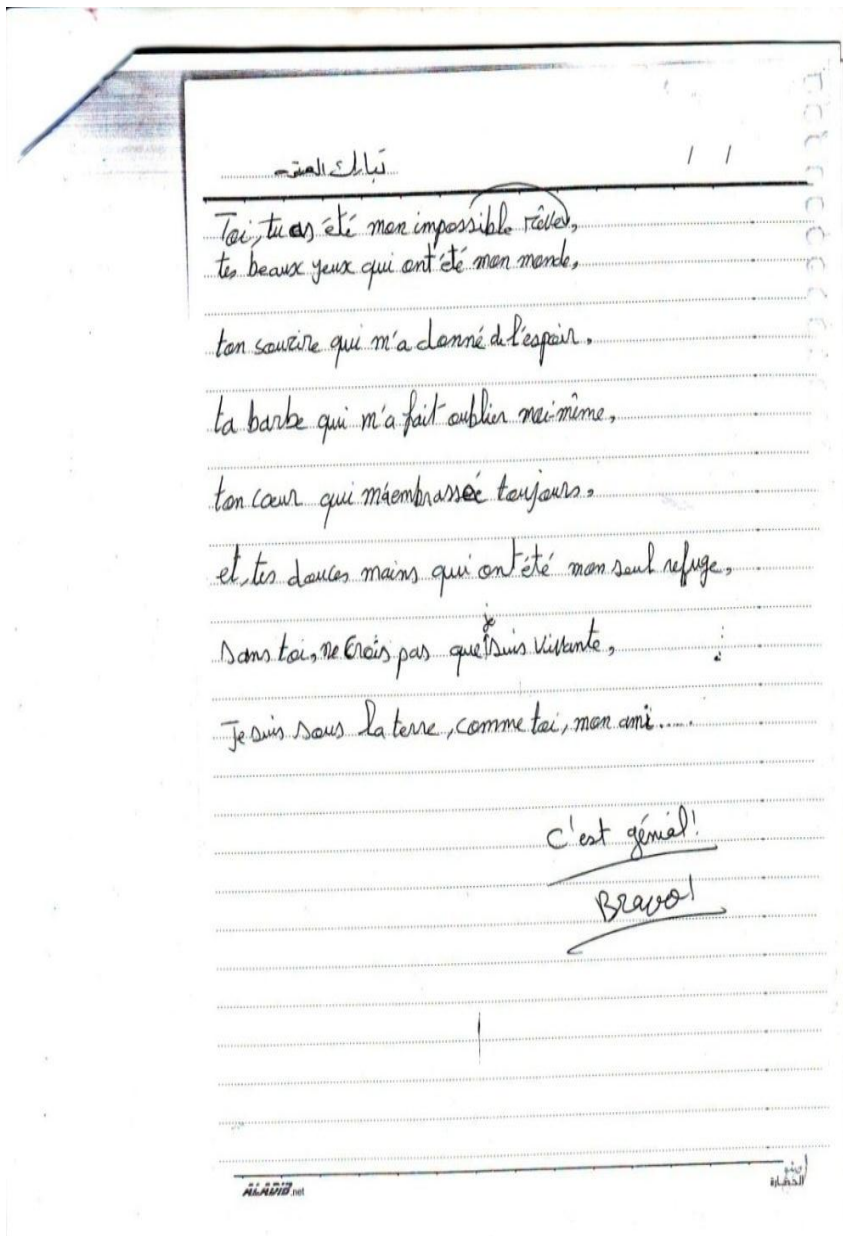 تبارك العتر / /
Toi, tu as été mon impossible rêve,
tes beaux yeux qui ont été mon monde,
ton sourire qui m'a donné de l'espoir,
ta barbe qui m'a fait oublier moi-même,
ton cœur qui m'aembrassée toujours,
et, tes douces mains qui ont été mon seul refuge,
Sans toi, ne crois pas que je suis vivante,
Je suis sous la terre, comme toi, mon ami.....
C'est génial!
Bravo!
ALADIB.net
الحضارة